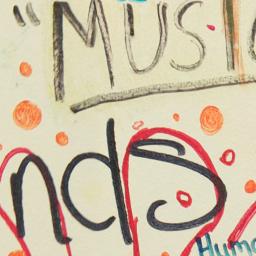 "MUSIC
nds
Huma